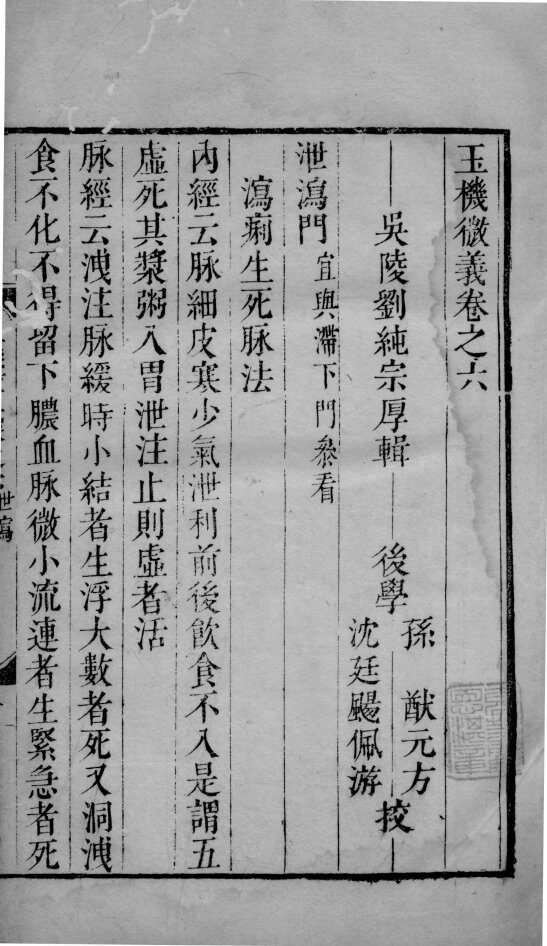 玉機微義卷之六
吳陵劉純宗厚輯 後學 孫 猷元方 沈廷颺佩游 挍
泄瀉門 宜與滯下門叅看
瀉痢生死脉法
内經云脉細皮寒少氣泄利前後飲食不入是謂五
虛死其漿粥入胃泄注止則虛者活
脉經云洩注脉緩時小結者生浮大數者死又洞洩
食不化不得留下膿血脉微小流連者生緊急者死
泄瀉